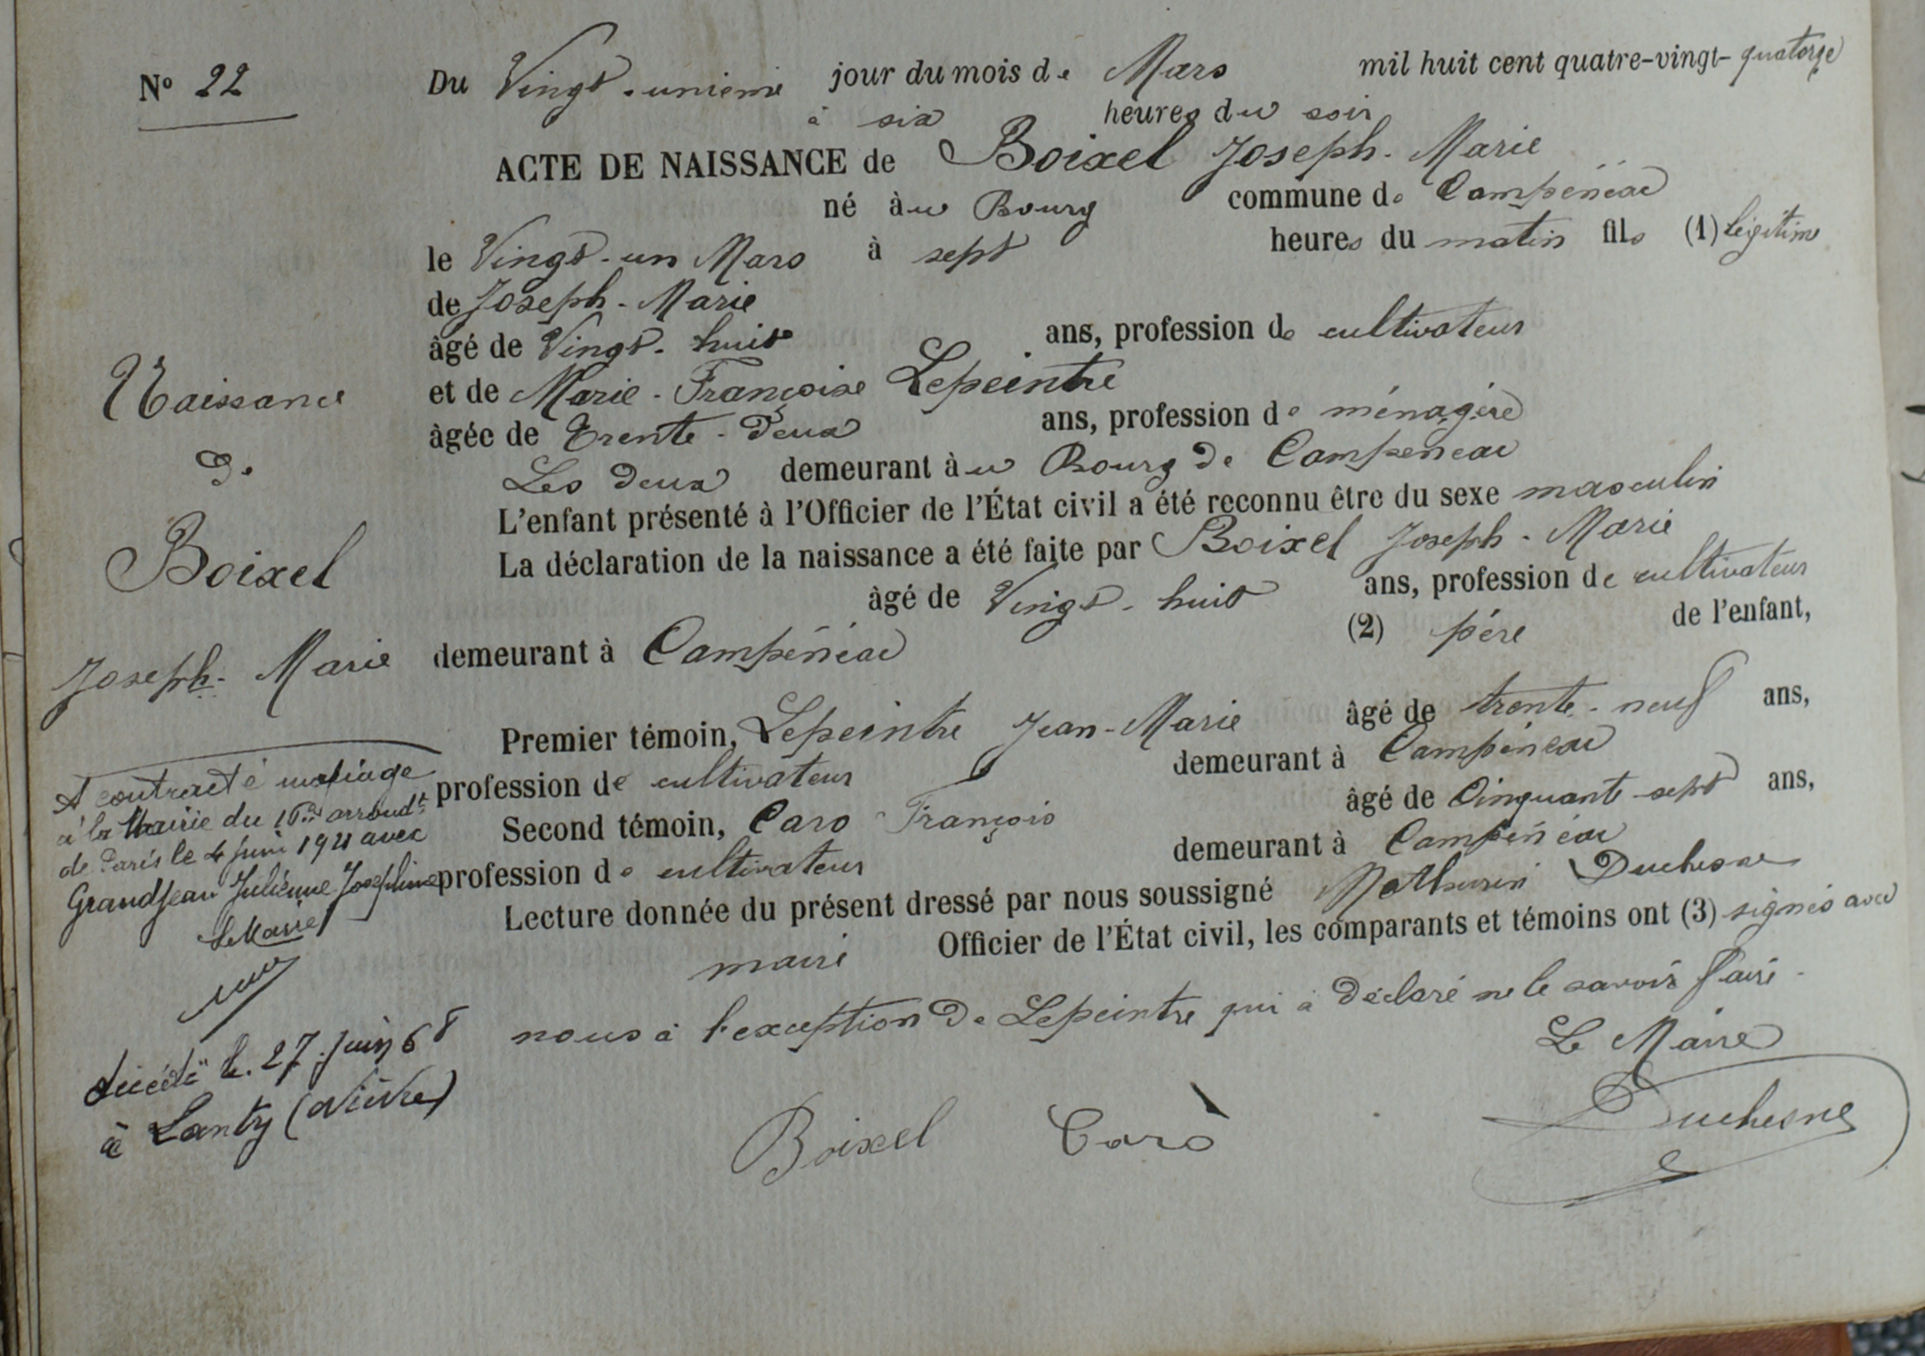 N° 22
Du Vingt-unième jour du mois de Mars mil huit cent quatre-vingt-quatorze
à six heures du soir
ACTE DE NAISSANCE de Boixel Joseph-Marie
né àu Bourg commune de Campénéac
le Vingt-un Mars à sept heures du matin fils (1) légitime
de Joseph-Marie
âgé de Vingt-huit ans, profession de cultivateur
et de Marie-Françoise Lepeintre
âgée de Trente-deux ans, profession de ménagère
Les deux demeurant àu Bourg de Campénéac
L'enfant présenté à l'Officier de l'État civil a été reconnu être du sexe masculin
La déclaration de la naissance a été faite par Boixel Joseph-Marie
âgé de Vingt-huit ans, profession de cultivateur
demeurant à Campénéac (2) père de l'enfant,
Premier témoin, Lepeintre Jean-Marie âgé de trente-neuf ans,
profession de cultivateur demeurant à Campénéac
Second témoin, Caro François âgé de Cinquante-sept ans,
profession de cultivateur demeurant à Campénéac
Lecture donnée du présent dressé par nous soussigné Mathurin Duchesne
maire Officier de l'État civil, les comparants et témoins ont (3) signés avec
nous à l'exception de Lepeintre qui à déclaré ne le savoir faire.
Le Maire
Boixel Caro Duchesne
Naissance
de
Boixel
Joseph-Marie
A contracté mariage
à la Mairie du 16me arrondt
de Paris le 4 juin 1921 avec
Grandjean Julienne Joséphine
Le Maire
décédé le 27 juin 68
à Lanty (Nièvre)